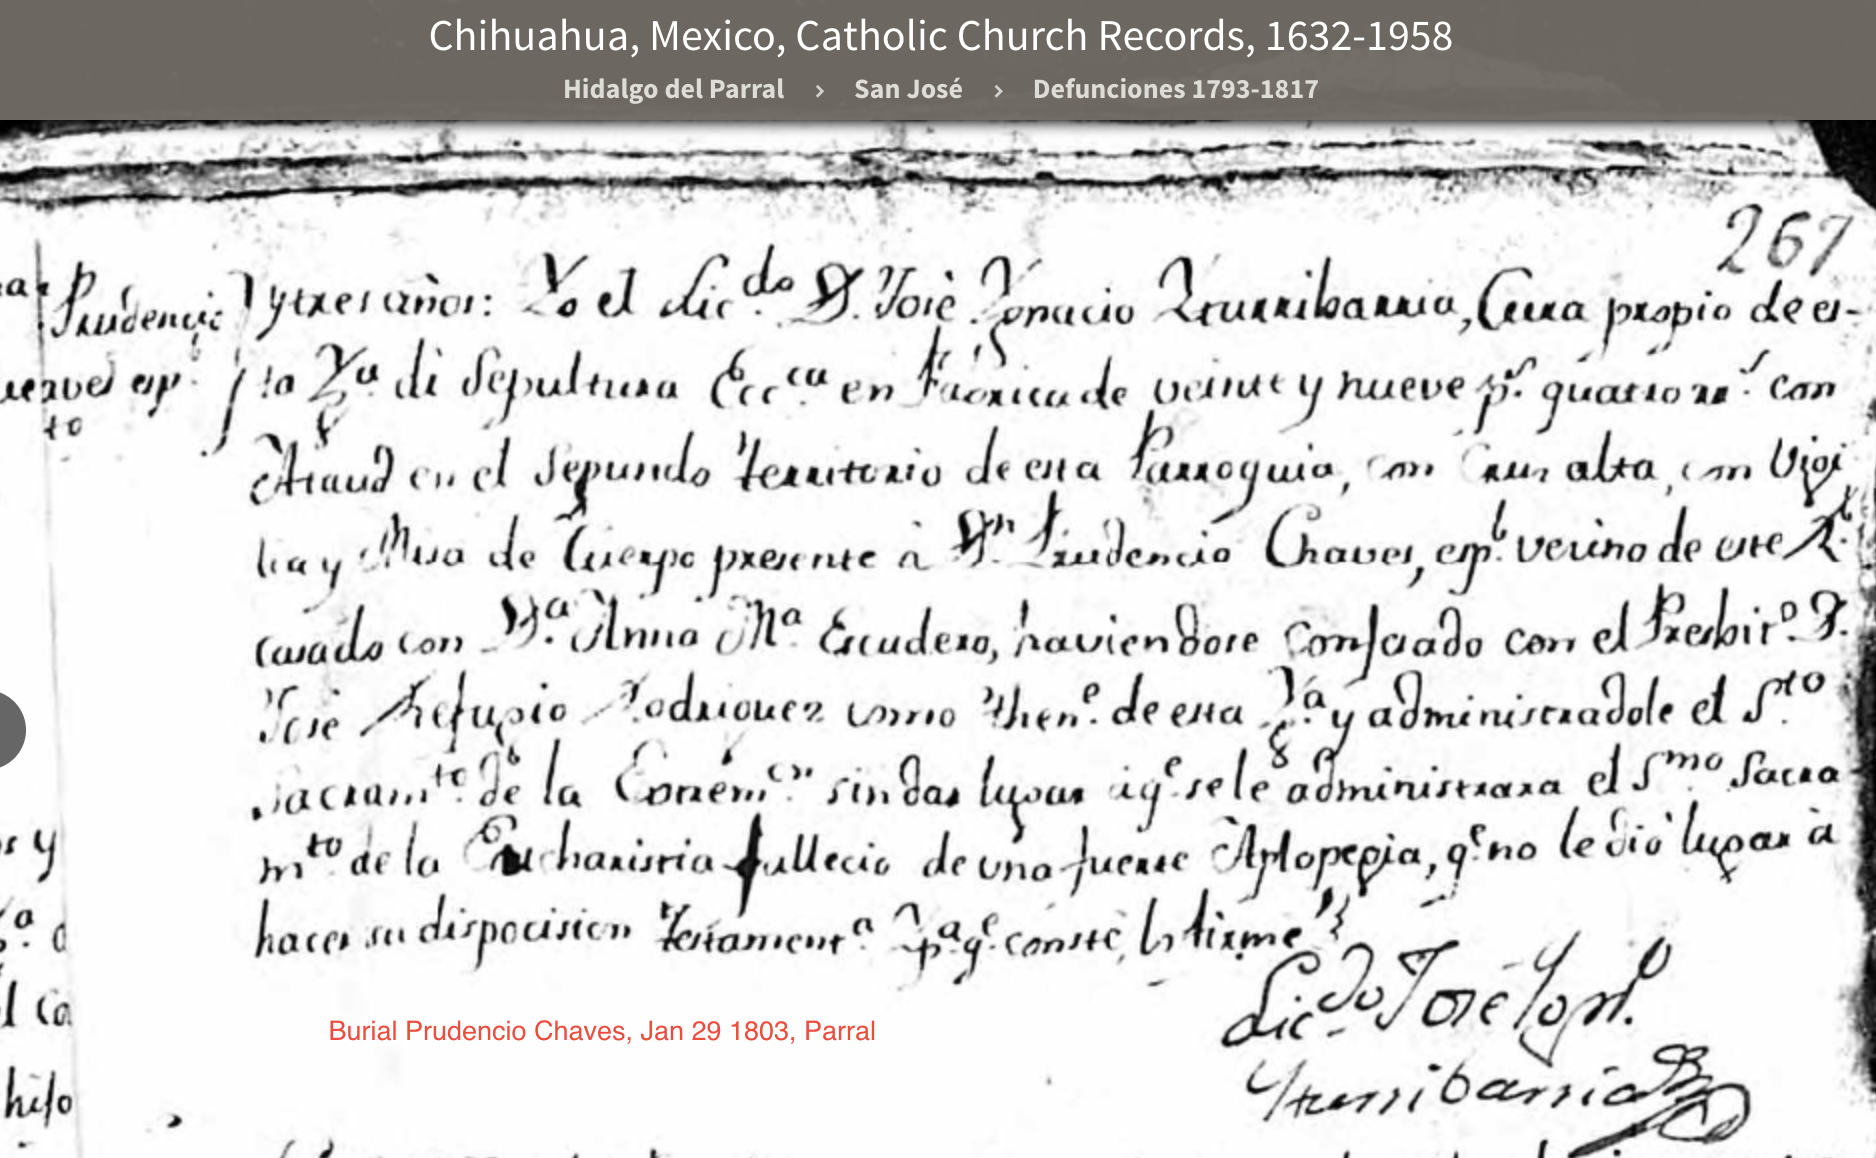 Chihuahua, Mexico, Catholic Church Records, 1632-1958
Hidalgo del Parral › San José › Defunciones 1793-1817
267
Prudencio
esp.
to
y tres años: Yo el Lic.do D. José Ygnacio Yturribarria, Cura propio de es-
ta Yg.a di Sepultura Ecc.ca en Fabrica de veinte y nueve p.s quatro rr.s con
Ataud en el Segundo territorio de esta Parroquia, con Cruz alta, con Vigi
lia y Misa de Cuerpo presente à D.n Prudencio Chaves, esp.l vecino de este R.l
casado con D.a Anna M.a Escudero, haviendose confesado con el Presbit.o D.
José Refugio Rodriguez como then.e de esta Yg.a y administradole el S.to
Sacram.to de la sin dar lugar à q.e se le administrara el S.mo Sacra
m.to de la Eucharistia fallecio de una fuerte Aplopegia, q.e no le diò lugar à
hacer su dispocision testament.a p.a q.e conste, lo firmè
Burial Prudencio Chaves, Jan 29 1803, Parral
Lic.do José Ygn.o
Yturribarria
s y
hijo